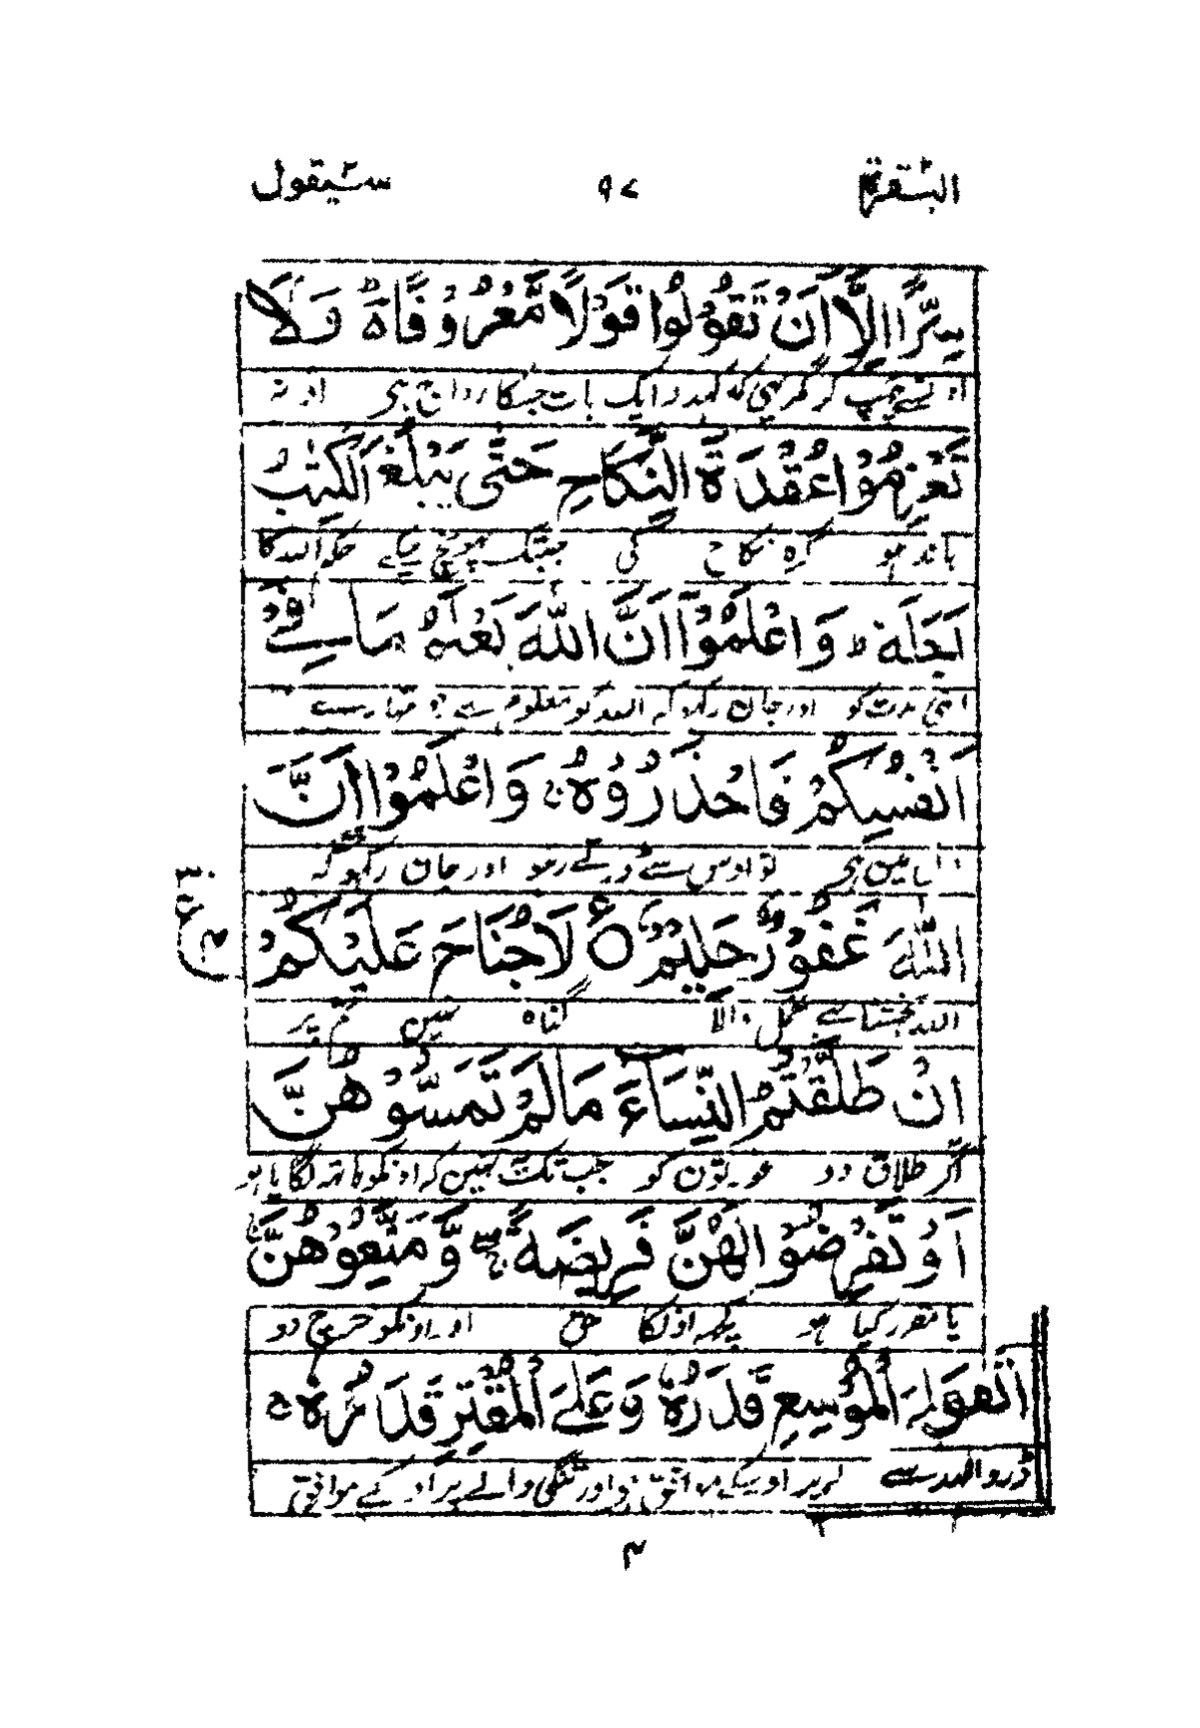 البقرة ۹۷ سيقول
سِرًّا اِلَّآ اَنْ تَقُوْلُوْا قَوْلًا مَّعْرُوْفًا ەؕ وَلَا
کہدو ایک بات جسکا رواج ہی اور نہ
تَعْزِمُوْا عُقْدَةَ النِّكَاحِ حَتّٰى يَبْلُغَ الْكِتٰبُ
باندھو گرہ نکاح کی جبتک پہونچ چکے حکم اللہ کا
اَجَلَهٗ ؕ وَاعْلَمُوْٓا اَنَّ اللّٰهَ يَعْلَمُ مَا فِيْٓ
اپنی مدت کو اور جان رکھو کہ اللہ کو معلوم ہے جو تمہارے
اَنْفُسِكُمْ فَاحْذَرُوْهُ ۚ وَاعْلَمُوْٓا اَنَّ
دل مین ہی تو اوس سے ڈرتے رہو اور جان رکھو کہ
اللّٰهَ غَفُوْرٌ حَلِيْمٌ ۝ لَا جُنَاحَ عَلَيْكُمْ
اللہ بخشتا ہے تحمل والا گناہ نہین تم پر
اِنْ طَلَّقْتُمُ النِّسَآءَ مَا لَمْ تَمَسُّوْهُنَّ
اگر طلاق دو عورتون کو جب تک نہین کہ اونکو ہاتھ لگایا ہو
اَوْ تَفْرِضُوْا لَهُنَّ فَرِيْضَةً ۚ وَّمَتِّعُوْهُنَّ ۚ
یا مقرر کیا ہو کچھ اونکا حق اور اونکو خرچ دو
عَلَى الْمُوْسِعِ قَدَرُهٗ وَعَلَى الْمُقْتِرِ قَدَرُهٗ ۚ
ڈرو اللہ سے اوسکے موافق ہے اور تنگی والے پر اوسکے موافق